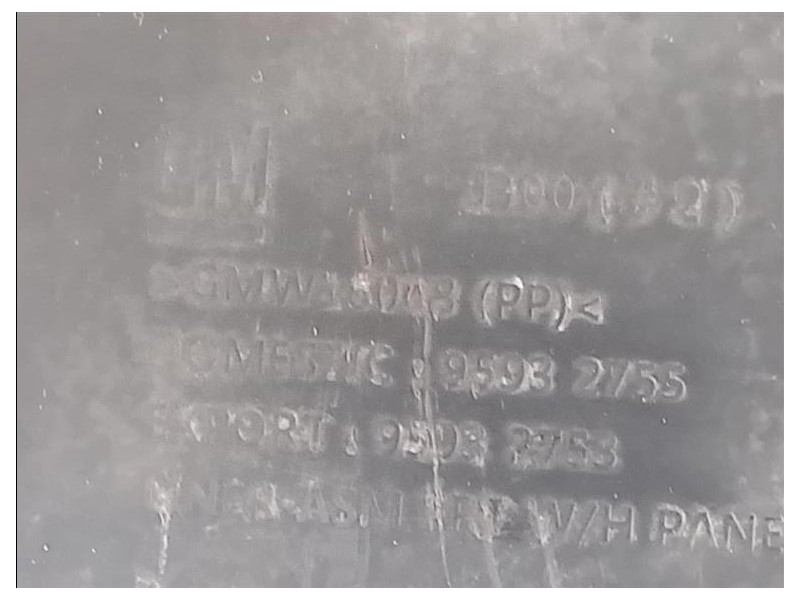 GM
>GMW15003 (PP)<
DOMESTIC : 9593 2755
EXPORT : 9593 2753
LINER-ASM FRT W/H PANE